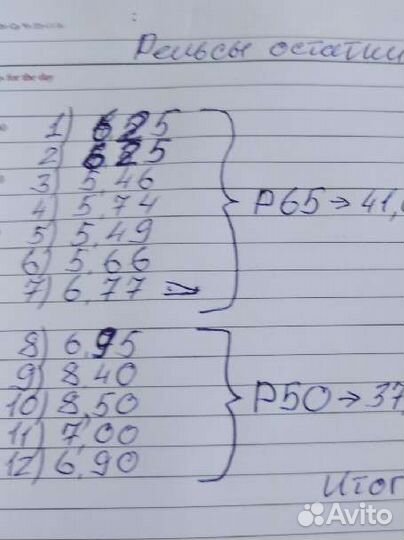 :
Рельсы остатки
for the day
1) 6,25
2) 6,25
3) 5,46
4) 5,74
5) 5,49
6) 5,66
7) 6,77
Р65 → 41,
8) 6,95
9) 8,40
10) 8,50
11) 7,00
12) 6,90
Р50 → 37,
Итог
Avito